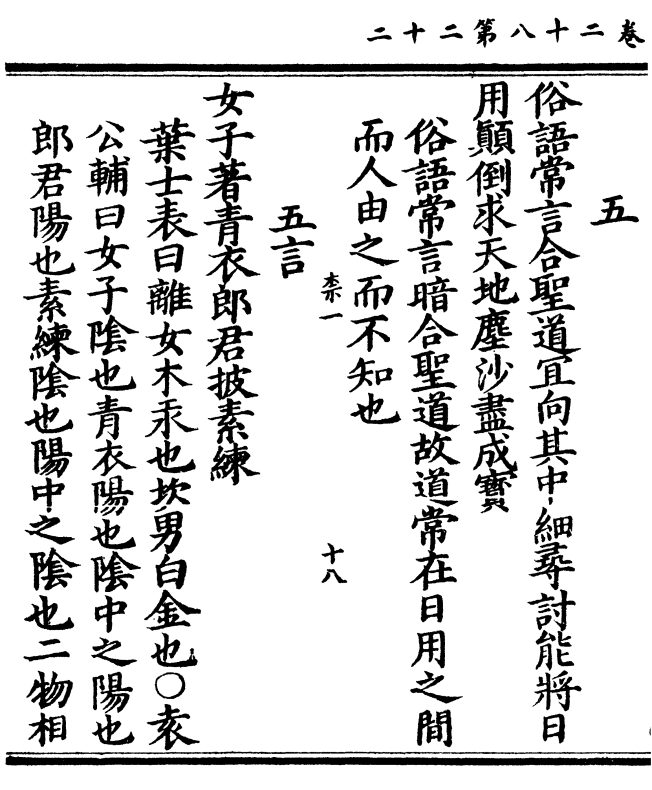 卷二十八第二十二
五
俗語常言合聖道冝向其中細尋討能將日
用顛倒求天地塵沙盡成寶
俗語常言暗合聖道故道常在日用之間
而人由之而不知也
柰一 十八
五言
女子著青衣郎君披素練
葉士表曰離女木汞也坎男白金也○袁
公輔曰女子陰也青衣陽也陰中之陽也
郎君陽也素練陰也陽中之陰也二物相